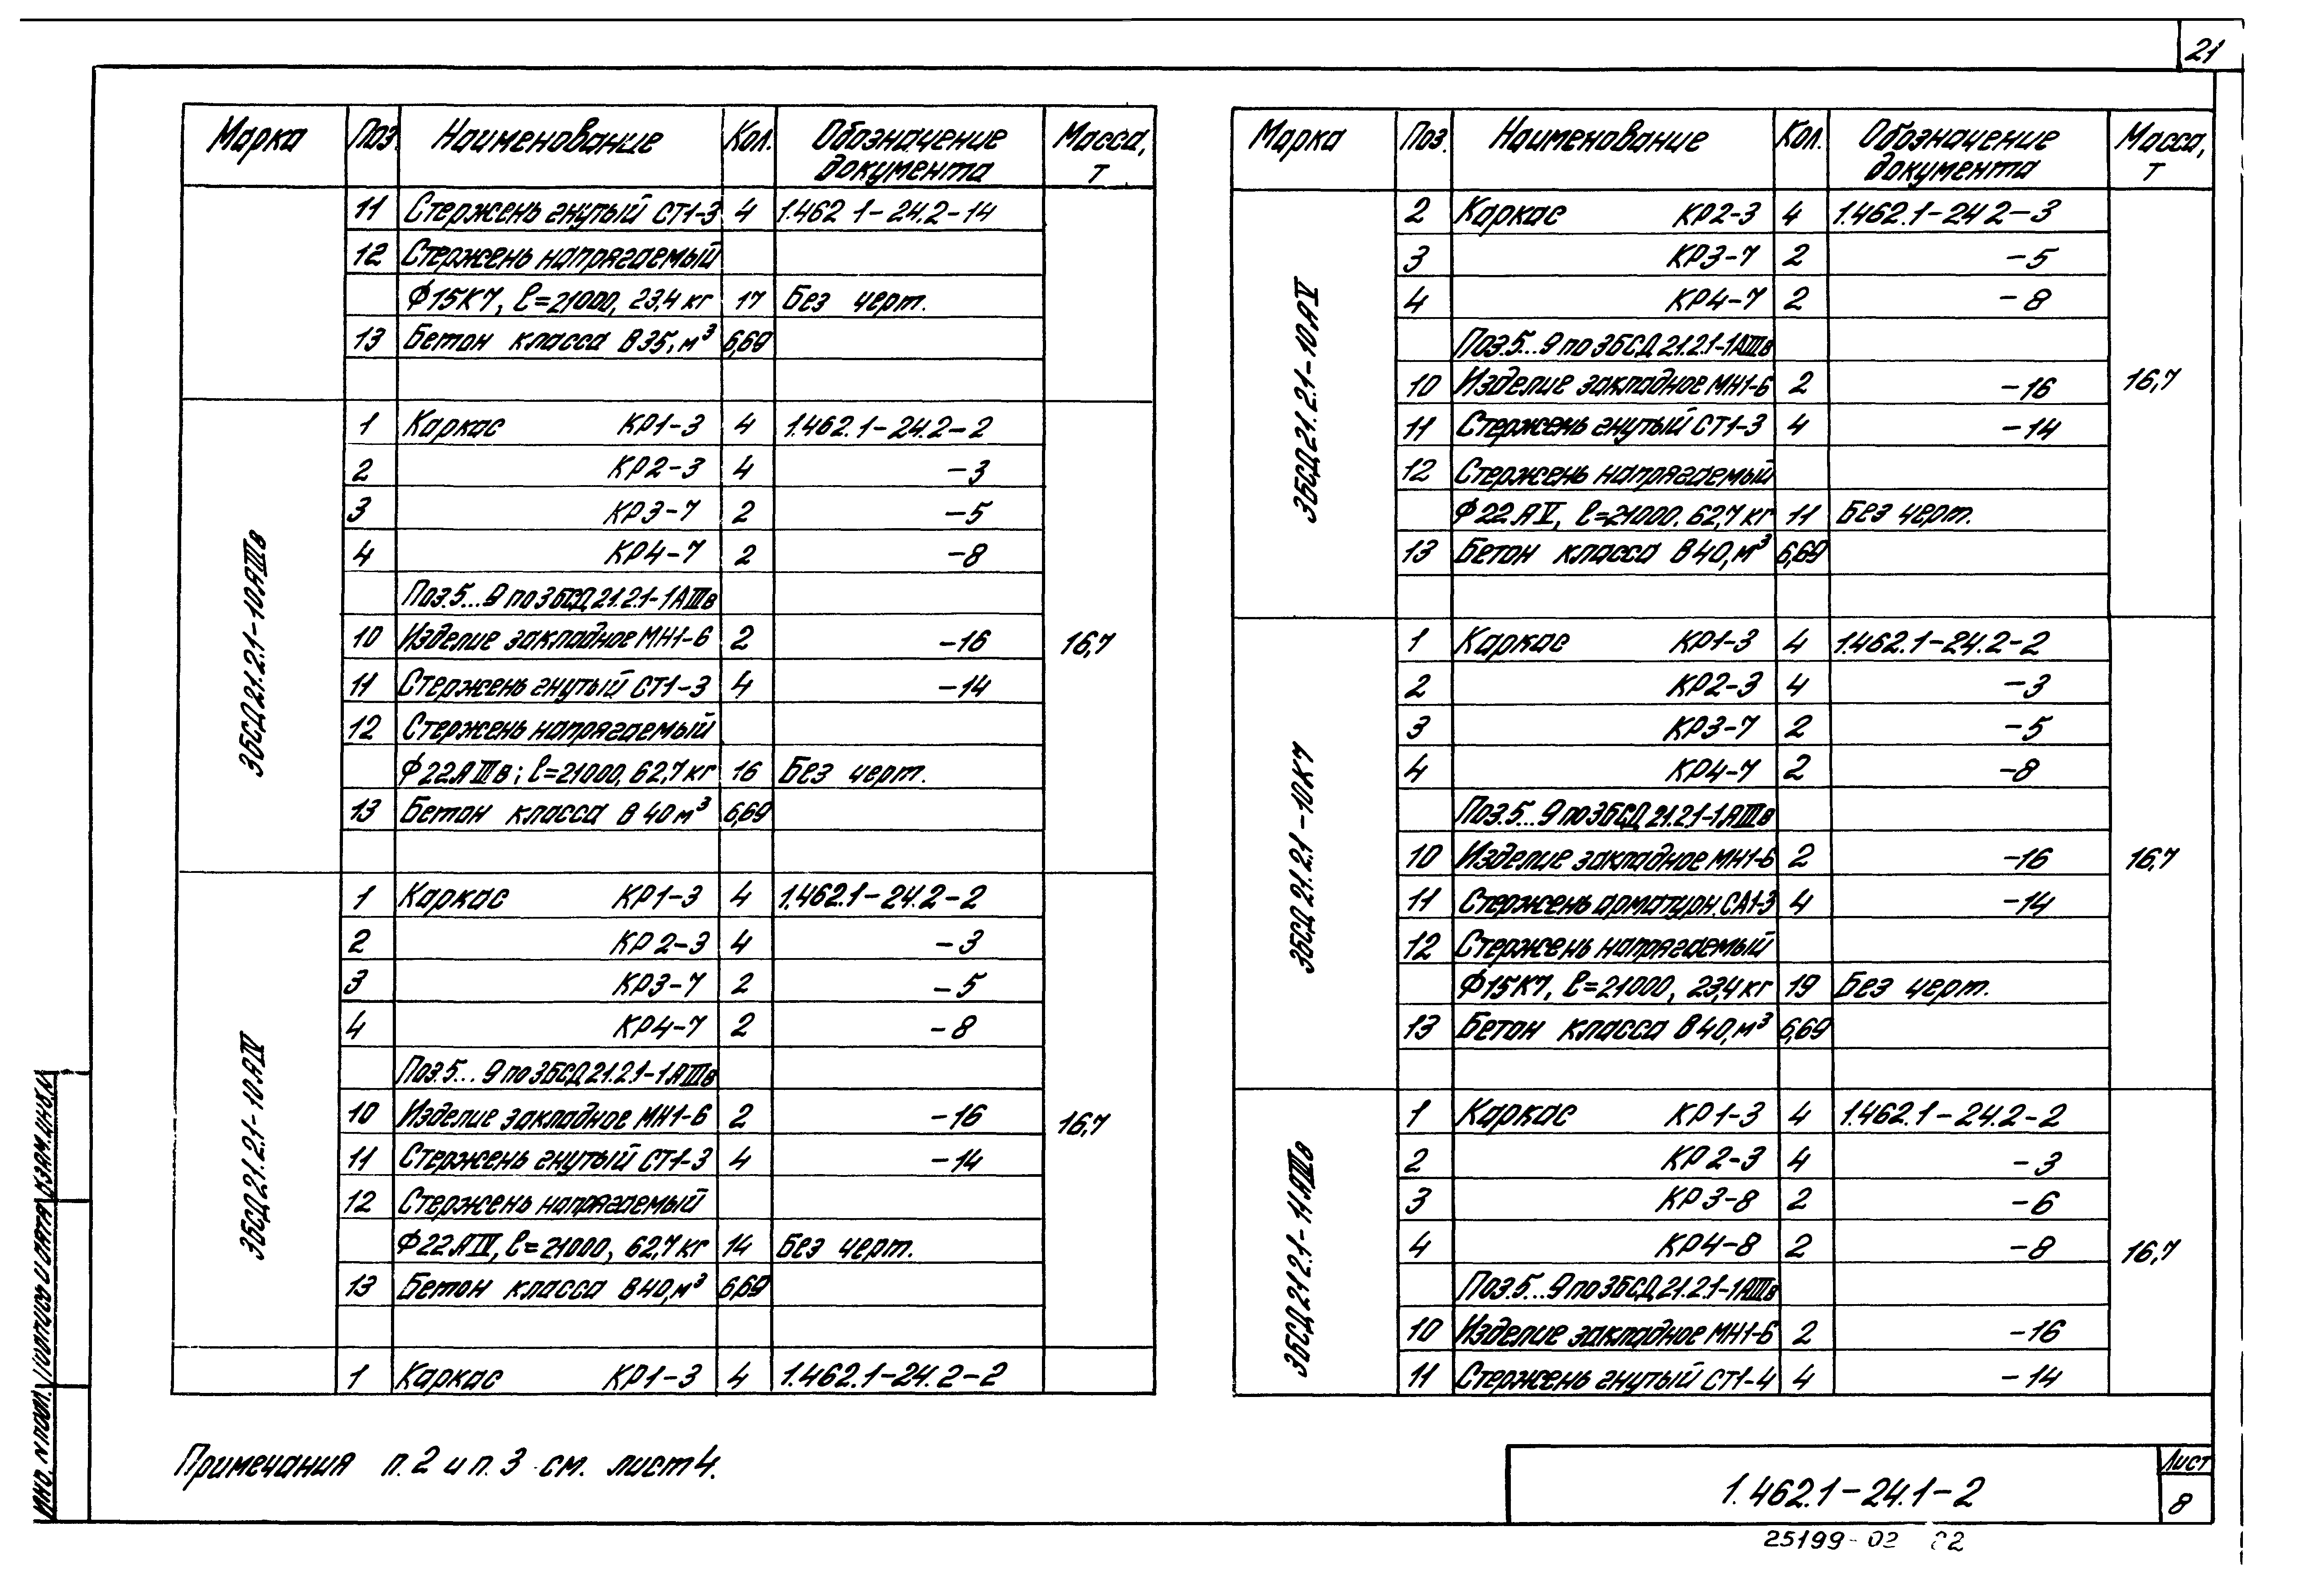 21
Марка Поз. Наименование Кол. Обозначение документа Масса, т
11 Стержень гнутый СТ1-3 4 1.462 1-24.2-14
12 Стержень напрягаемый
Ф15К7, ℓ=21000, 23,4 кг 17 Без черт.
13 Бетон класса В35, м³ 6,69
3БСД21.2.1-10АIIIв
1 Каркас КР1-3 4 1.462.1-24.2-2
2 КР2-3 4 -3
3 КР3-7 2 -5
4 КР4-7 2 -8
Поз.5...9 по 3БСД21.2.1-1АIIIв
10 Изделие закладное МН1-6 2 -16 16,7
11 Стержень гнутый СТ1-3 4 -14
12 Стержень напрягаемый
Ф22АIIIв; ℓ=21000, 62,7 кг 16 Без черт.
13 Бетон класса В40 м³ 6,69
3БСД21.2.1-10АIV
1 Каркас КР1-3 4 1.462.1-24.2-2
2 КР2-3 4 -3
3 КР3-7 2 -5
4 КР4-7 2 -8
Поз.5...9 по 3БСД21.2.1-1АIIIв
10 Изделие закладное МН1-6 2 -16 16,7
11 Стержень гнутый СТ1-3 4 -14
12 Стержень напрягаемый
Ф22АIV, ℓ=21000, 62,7 кг 14 Без черт.
13 Бетон класса В40, м³ 6,69
1 Каркас КР1-3 4 1.462.1-24.2-2
Марка Поз. Наименование Кол. Обозначение документа Масса, т
3БСД21.2.1-10АV
2 Каркас КР2-3 4 1.462.1-24 2-3
3 КР3-7 2 -5
4 КР4-7 2 -8
Поз.5...9 по 3БСД21.2.1-1АIIIв
10 Изделие закладное МН1-6 2 -16 16,7
11 Стержень гнутый СТ1-3 4 -14
12 Стержень напрягаемый
Ф22АV, ℓ=21000. 62,7 кг 11 Без черт.
13 Бетон класса В40, м³ 6,69
3БСД21.2.1-10К7
1 Каркас КР1-3 4 1.462.1-24.2-2
2 КР2-3 4 -3
3 КР3-7 2 -5
4 КР4-7 2 -8
Поз.5...9 по 3БСД21.2.1-1АIIIв
10 Изделие закладное МН1-6 2 -16 16,7
11 Стержень арматурн. СА1-3 4 -14
12 Стержень напрягаемый
Ф15К7, ℓ=21000, 23,4 кг 19 Без черт.
13 Бетон класса В40, м³ 6,69
3БСД21 2.1-11АIIIв
1 Каркас КР1-3 4 1.462.1-24.2-2
2 КР2-3 4 -3
3 КР3-8 2 -6
4 КР4-8 2 -8 16,7
Поз.5...9 по 3БСД21.2.1-1АIIIв
10 Изделие закладное МН1-6 2 -16
11 Стержень гнутый СТ1-4 4 -14
Примечания п.2 и п.3 см. лист 4.
1.462.1-24.1-2
Лист
8
25199-02
Инв. N подл. Подпись и дата Взам.инв.N